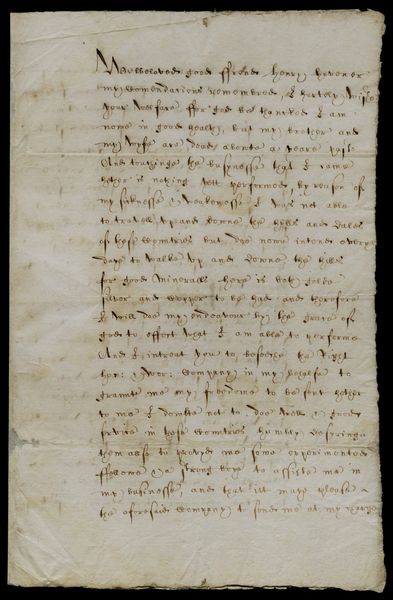 Wellbeloved good ffrend Henry
my comendacions remembred, I hartely wishe
your welfare ffor god be thancked I am
nowe in good health, but my brother and
my wyfe are dead aboute a yeare past
And touchinge the busynesse that I came
hether is nothing yett performed, by reason of
my sicknesse & weaknesse I was not able
to travell vp and downe the hills and dales
of these countries but doe nowe intend every
daye to walke vp and downe the hills
for good mineralls here is both golde
silver and copper to be had and therefore
I will doe my endeavour by the grace of
god to effect what I am able to performe
And I intreat you to beseche the Right
hon: & wor: company in my behalfe to
graunt me my freedome to be sent hether
to me I doubte not to doe well & good
service in these countries humbly desyringe
them also to provyde me some
ffellowe & a strong boye to assiste me in
my businesse, and that itt may please
the aforesaid company to send me at my